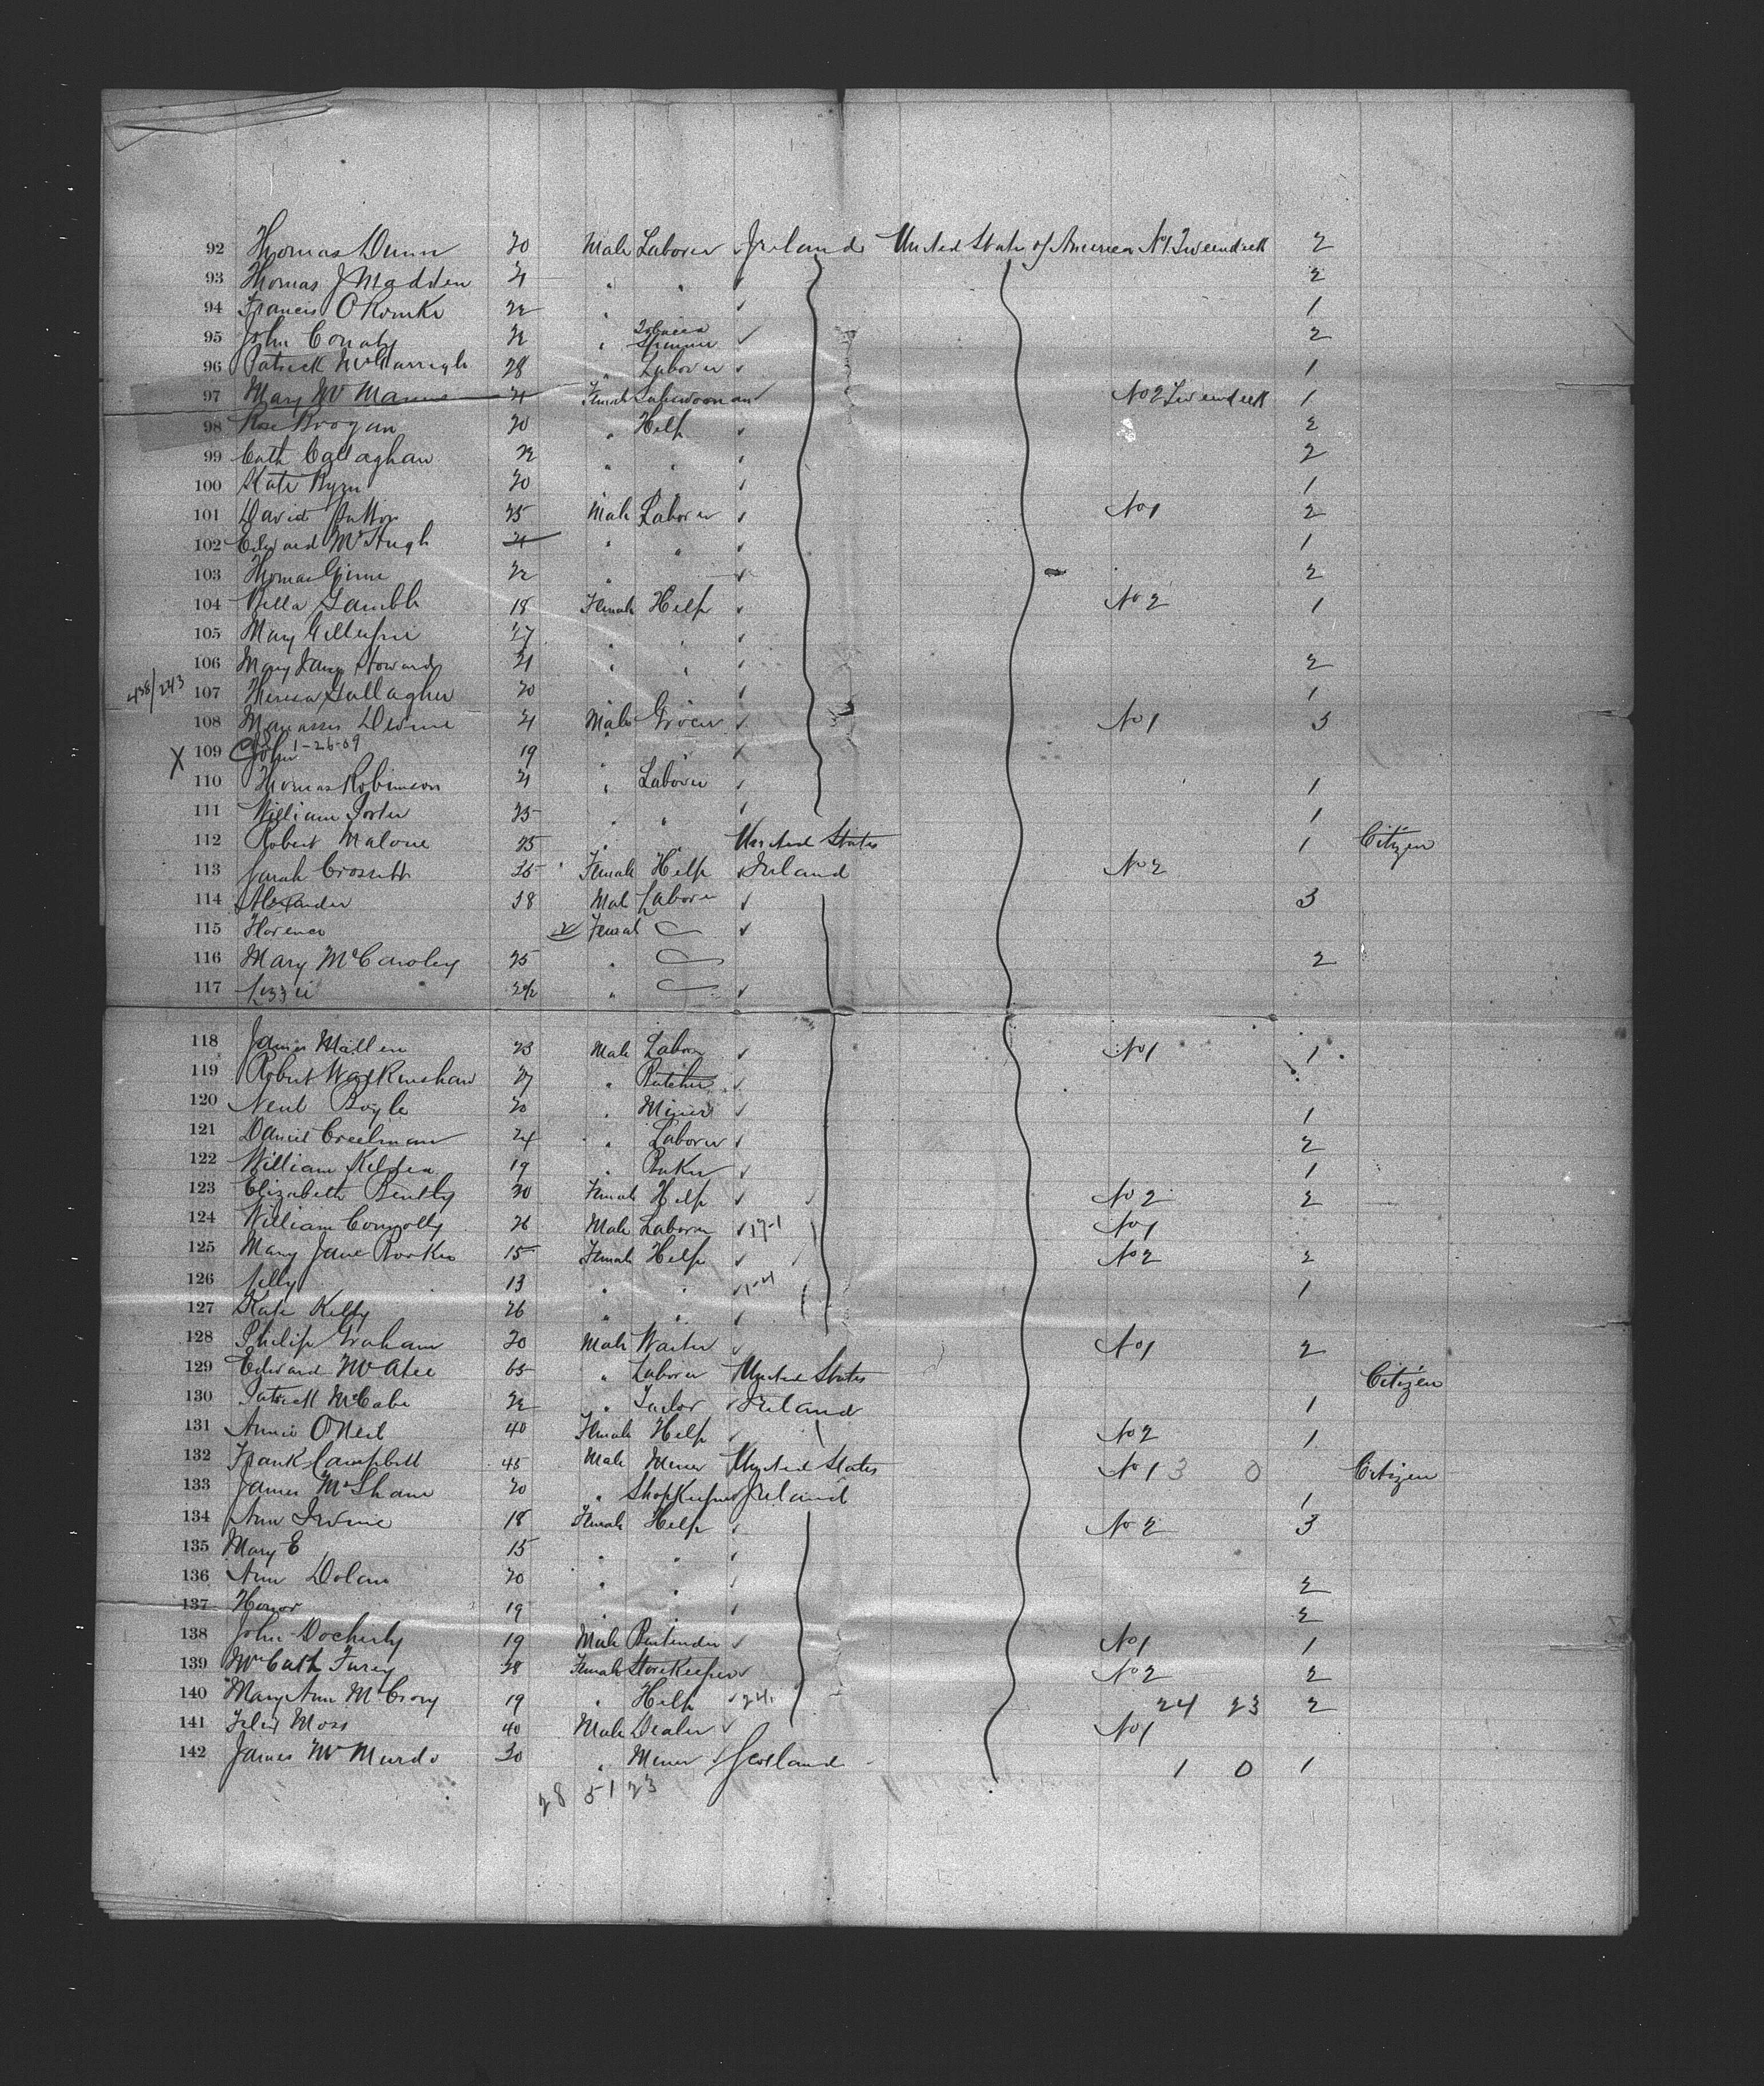 92 Thomas Dunn 20 Male Laborer Ireland United States of America No 1 Tweendeck 2
93 Thomas J Madden 21 " " 2
94 Francis O Rourke 22 " 1
95 John Conaty 22 " Tobacco Spinner 2
96 Patrick McGarrigle 28 " Laborer 1
97 Mary Mc Manus 21 Female No 2 Tweendeck 1
98 Rose Brogan 20 " Help 2
99 Cath Callaghan 22 " " 2
100 Kate Byrn 20 " " 1
101 David Patton 25 Male Laborer No 1 2
102 Edward McHugh 21 " " 1
103 Thomas 22 " " 2
104 Bella Gamble 18 Female Help No 2 1
105 Mary Gillespie 27 " "
106 Mary Jane Howard 21 " " 2
438/243 107 Theresa Gallagher 20 " " 1
108 Manasses Devine 21 Male Grocer No 1 3
X 109 John 1-26-09 19 " "
110 Thomas Robinson 21 " Laborer 1
111 William 25 " " 1
112 Robert Malone 25 " " United States 1 Citizen
113 Sarah Crossett 35 Female Help Ireland No 2
114 Alexander 38 Male Laborer 3
115 Florence Female
116 Mary McCawley 25 " 2
117 Lizzie "
118 James Millen 23 Male Labor No 1 1
119 Robert Walkinshaw 27 " Butcher
120 Neal Boyle 20 " Miner 1
121 Daniel Creelman 24 " Laborer 2
122 William 19 " Baker 1
123 Elizabeth Bently 20 Female Help No 2 2
124 William Connolly 26 Male Laborer No 1
125 Mary Jane Rorke 15 Female Help No 2 2
126 13 " " 1
127 Kate Kelly 26 " "
128 Philip Graham 20 Male Waiter No 1 2
129 Edward Mc Atee 65 " Laborer United States Citizen
130 Patrick McCabe 22 " Tailor Ireland 1
131 Annie O'Neil 40 Female Help No 2 1
132 Frank Campbell 45 Male Miner United States No 1 3 0 Citizen
133 James McShane 20 " Shopkeeper Ireland 1
134 Ann Irvine 18 Female Help No 2 3
135 Mary E 15 " "
136 Ann Dolan 20 " " 2
137 Honor 19 " " 2
138 John Docherty 19 Male Bartender No 1 1
139 Cath Furey 38 Female Storekeeper No 2 2
140 Mary Ann McCrory 19 " Help 24 23 2
141 Felix Moss 40 Male Dealer No 1
142 James Mc Murdo 30 " Miner Scotland 1 0 1
28 51 23